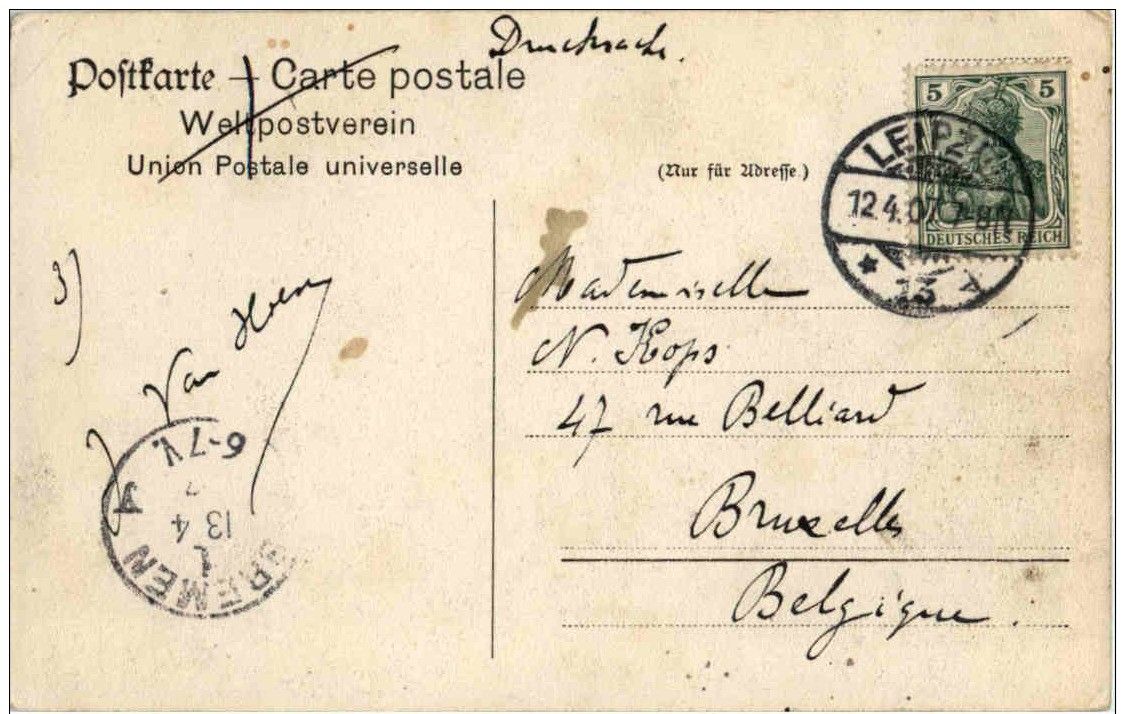 Drucksache.
Postkarte — Carte postale
Weltpostverein
Union Postale universelle
(Nur für Adresse.)
5 5
DEUTSCHES REICH
LEIPZIG
12.4.07. 7-8N
* 13
3)
Van
Mademoiselle
N. Kops
47 rue Belliard
Bruxelles
Belgique.
BREMEN
13 4
6-7V.